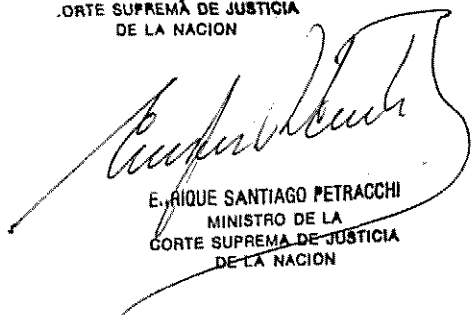 .ORTE SUPREMA DE JUSTICIA
DE LA NACION
E..RIQUE SANTIAGO PETRACCHI
MINISTRO DE LA
CORTE SUPREMA DE JUSTICIA
DE LA NACION